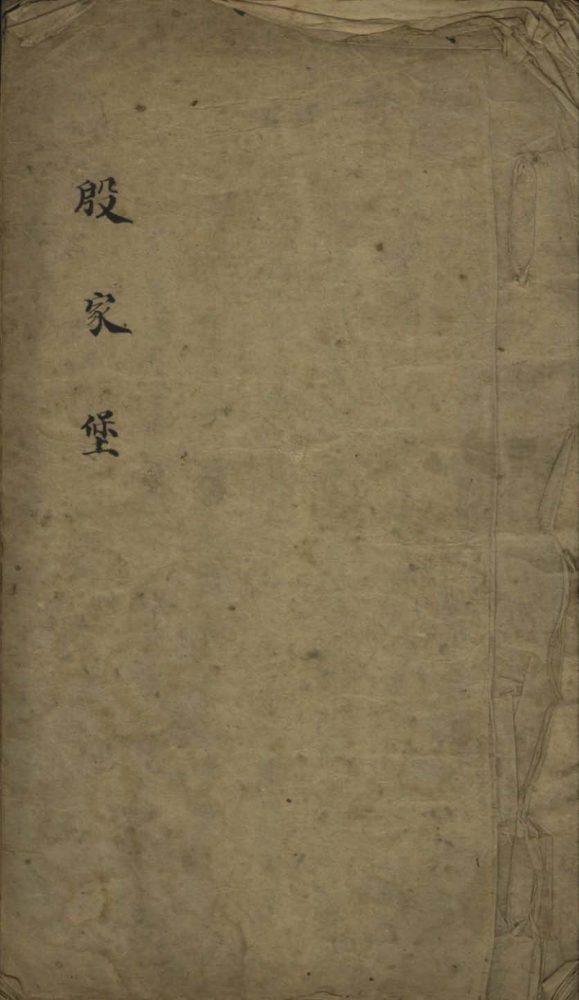 殷家堡